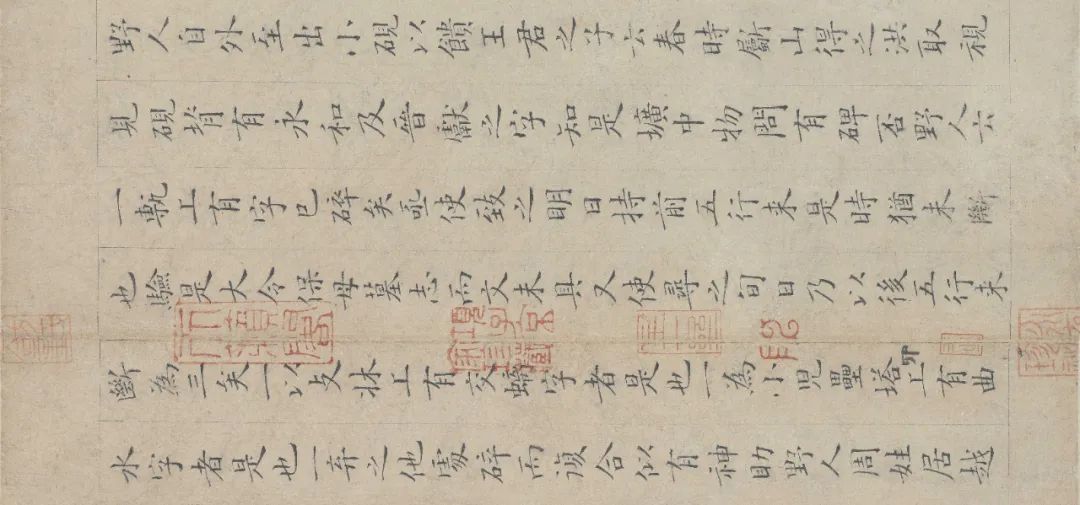 野人自外至出小硯以饋王君之子云春時斸山得之洪取視
見硯背有永和及晉獻之字知是壙中物問有碑否野人云
一甎上有字已碎矣亟使致之明日持前五行来是時猶未斷
也驗是大令保母墓志而文未具又使尋之旬日乃以後五行来
斷為三矣一以支牀上有交螭字者是也一為小兒壘塔上有曲
水字者是也一弃之他處碎而復合似有神助野人周姓居越